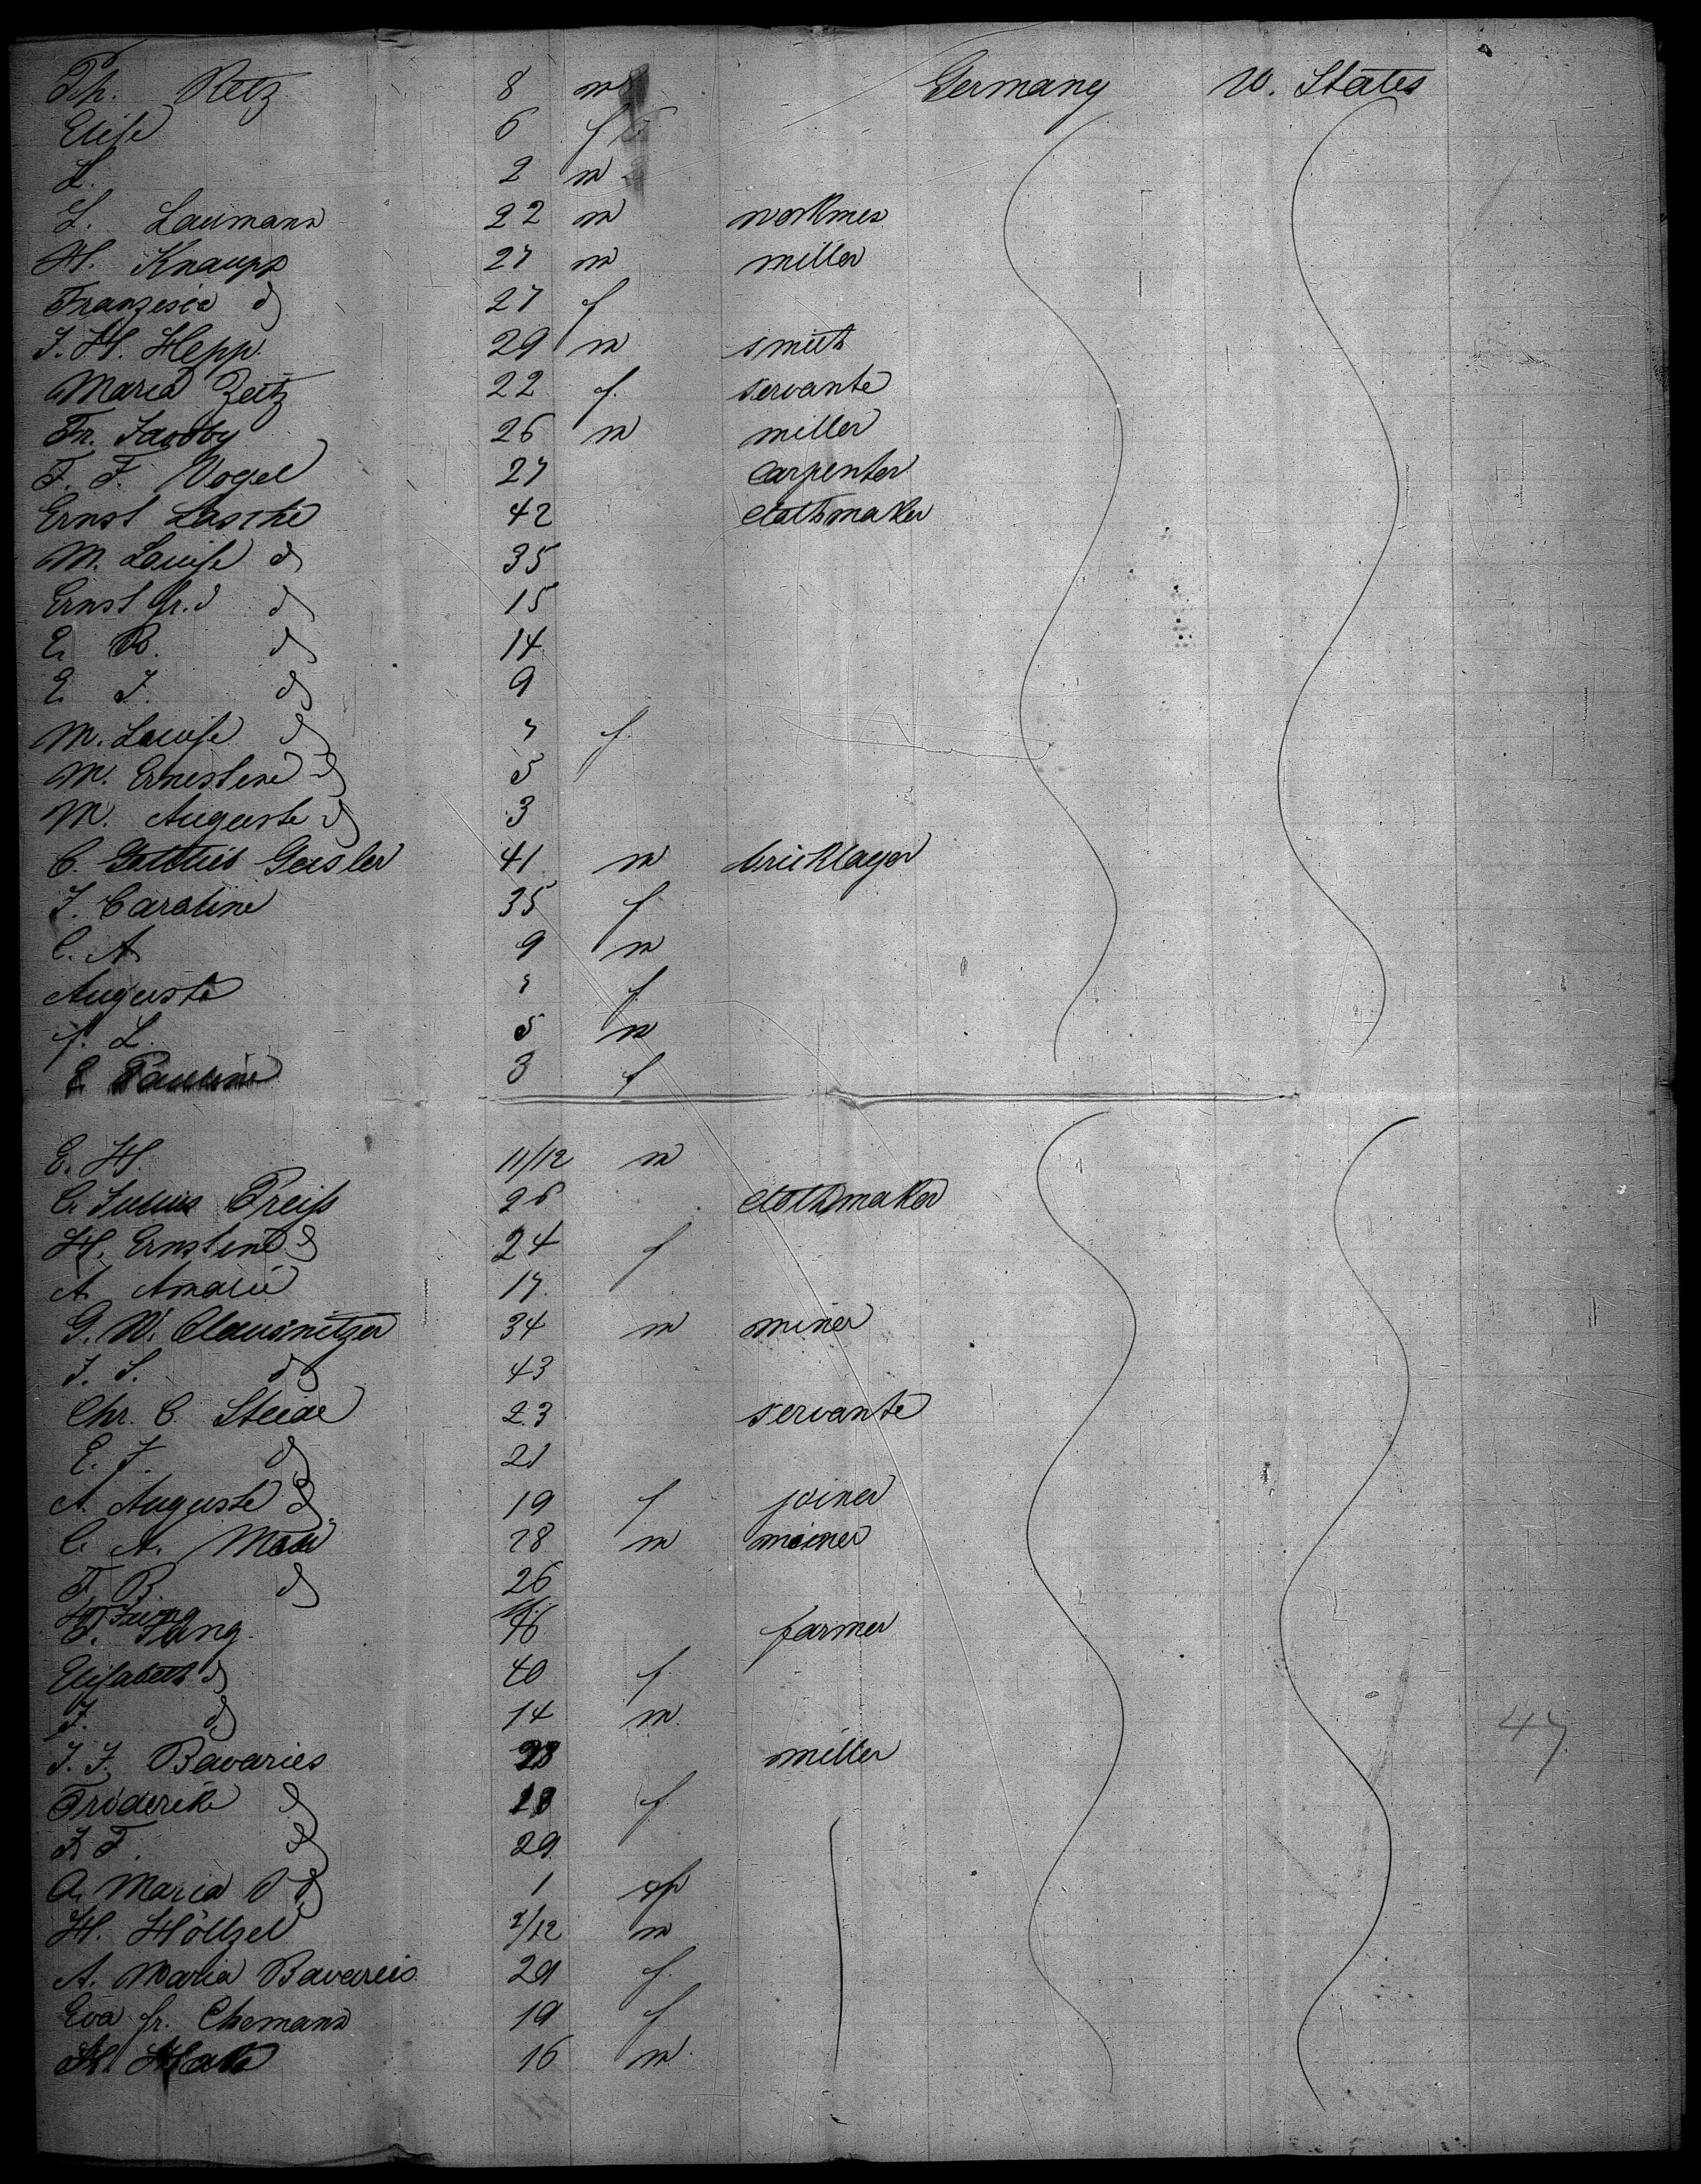 Ph. Retz 8 m Germany U. States
Elise 6 f
L. 2 m
L. Laumann 22 m workmes
H. Knaupp 27 m miller
Franzisca d 27 f
J. H. Hepp. 29 m smith
Maria Zeitz 22 f. servante
Fr. Jacoby 26 m miller
F. F. Vogel 27 carpenter
Ernst Lasche 42 clothmaker
M. Louise d 35
Ernst Fr. d 15
E. R. d 14
E. J. d 9
M. Louise d 7 f.
M. Ernestine d 5
M. Auguste d 3
C. Gottlieb Geisler 41 m bricklayer
J. Caroline 35 f
C. A. 9 m
Auguste 7 f
f. L. 5 m
E Pauline 3 f
E. H. 11/12 m
C. Julius Preiss 26 clothmaker
H. Ernstine d 24 f
A. Amalie 17.
G. W. Clausnitzer 34 m miner
J. S. d 43
Chr. C. Steide 23 servante
E. J. d 21
A. Auguste d 19 f joiner
C. A. 28 m meiner
F. B. d 26
H. Jung
J. Jung. 46 farmer
Elisabeth d 40 f
J. d 14 m. 47
J. J. Bavaries 28 miller
Frederike d 23 f
J. F. d 29.
A. Maria d 1 f
H. Höltzel 7/12 m
A. Maria Bavereis 29 f.
Eva fr. Ehemann 19 f
16 m.